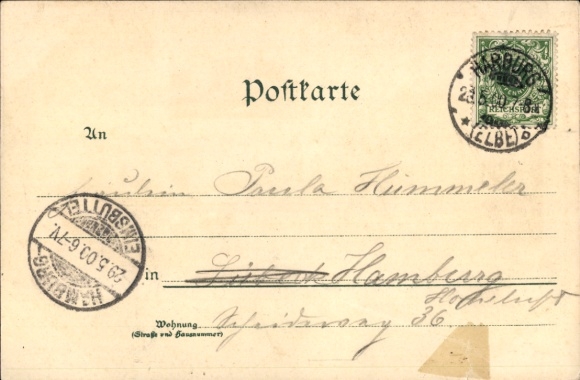 Postkarte
HARBURG
(ELBE)
REICHSPOST
An
Fräulein Paula Hümmeler
HAMBURG
29.5.00.6-7V.
EIMSBÜTTEL
in Lübeck Hamburg
Hoheluft
Wohnung Scheideweg 36
(Straße und Hausnummer)